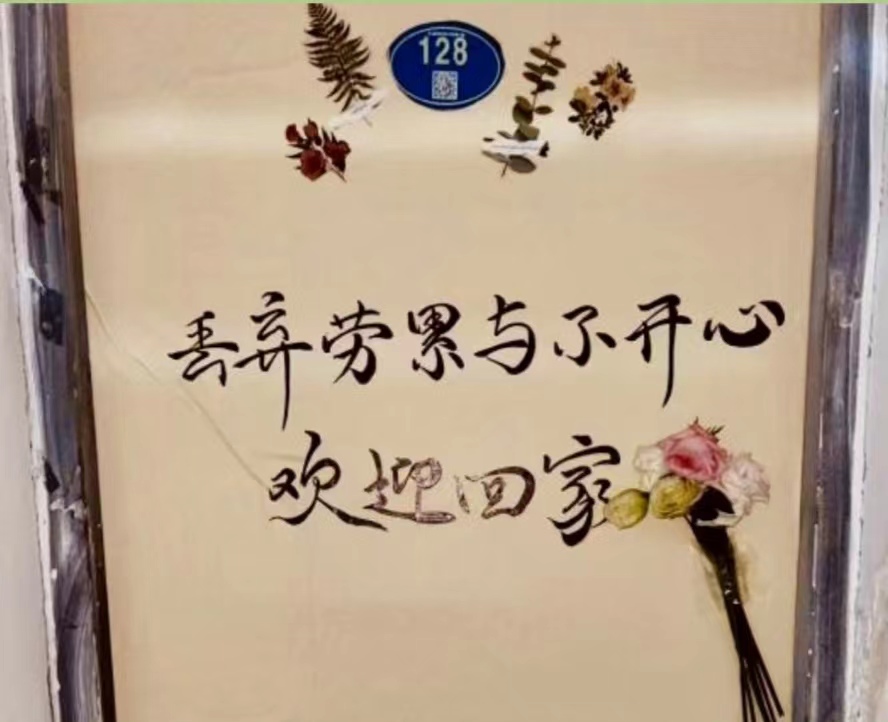 128
丢弃劳累与不开心
欢迎回家